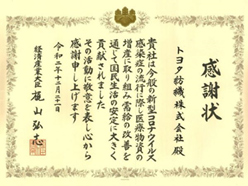 感謝状
トヨタ紡織株式会社殿
貴社は今般の新型コロナウイルス
感染症の流行に際し医療物資の
増産に取り組み需給の改善を
通じて国民生活の安定に大きく
貢献されました
その活動に敬意を表し心から
感謝申し上げます
令和二年十二月二十一日
経済産業大臣 梶山弘志